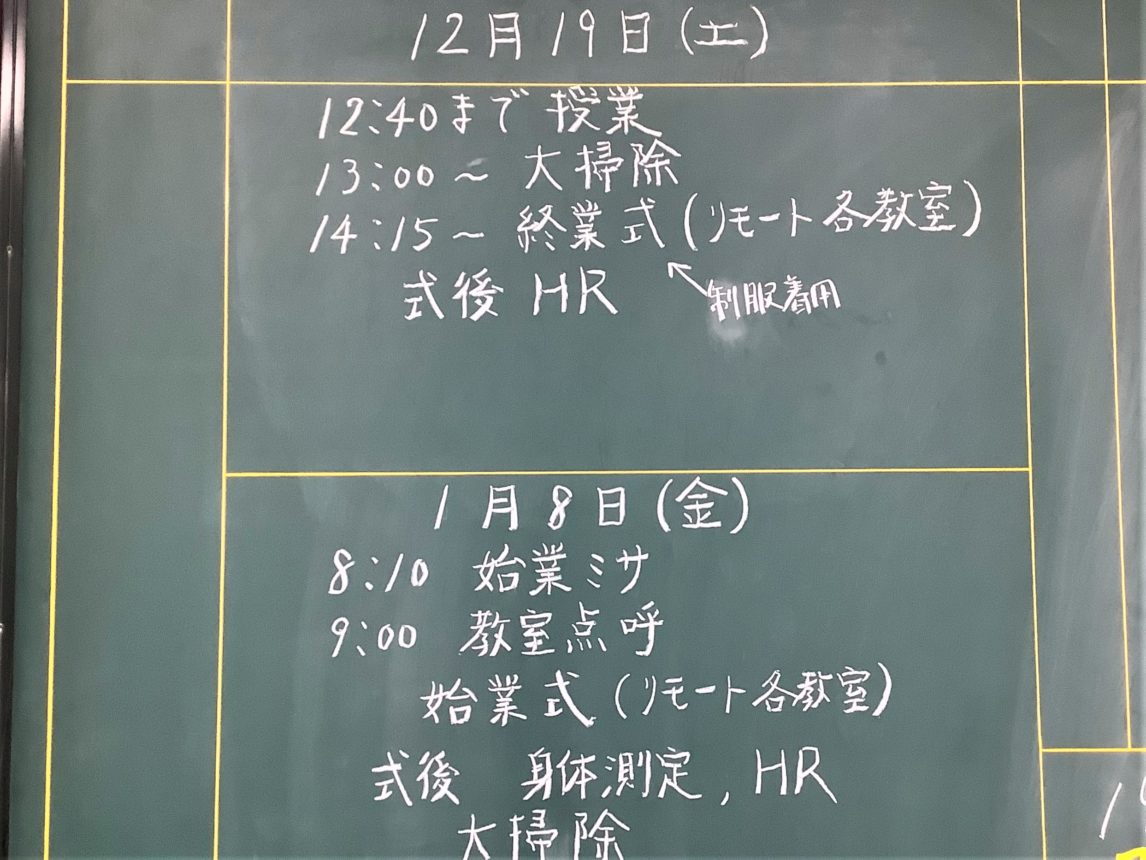 12月19日(土)
12:40まで 授業
13:00～ 大掃除
14:15～ 終業式(リモート各教室)
式後 HR
制服着用
1月8日(金)
8:10 始業ミサ
9:00 教室点呼
始業式(リモート各教室)
式後 身体測定, HR
大掃除